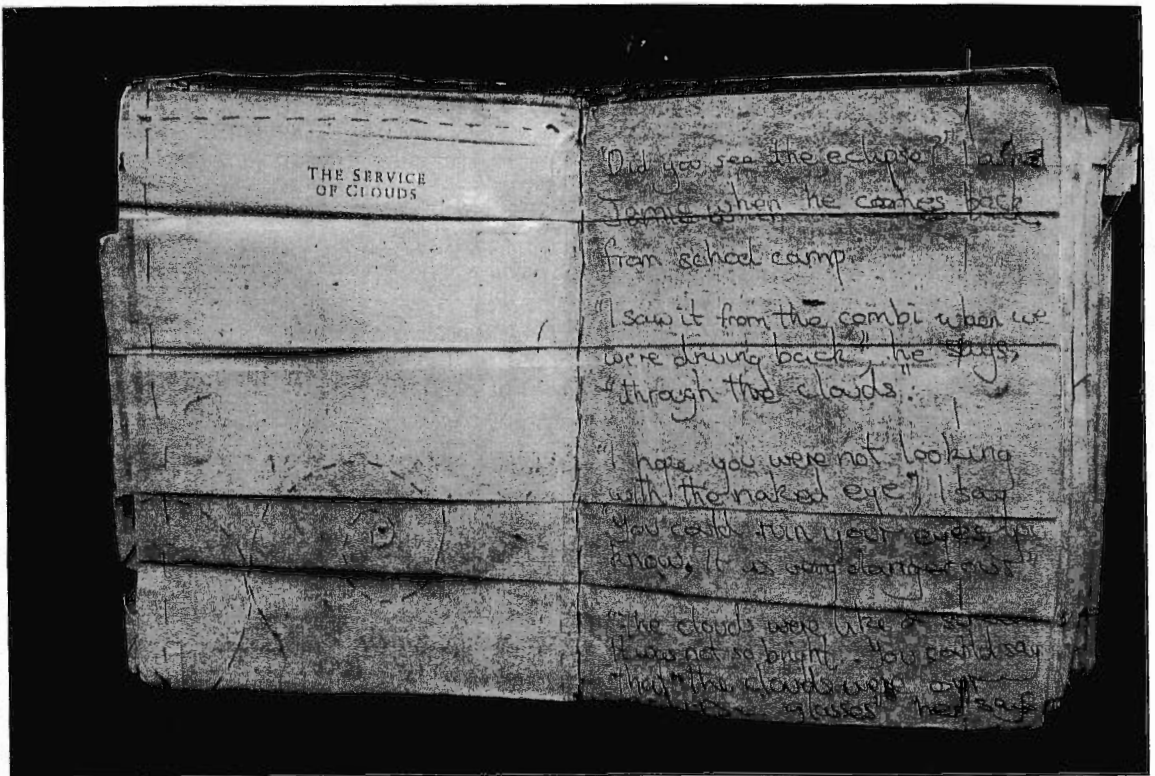 THE SERVICE
OF CLOUDS
"Did you see the eclipse?" I asked
Jamie when he comes back
from school camp.
"I saw it from the combi when we
were driving back", he says,
"through the clouds".
"I hope you were not looking
with the naked eye", I say
"you could ruin your eyes, you
know, it is very dangerous"
"The clouds were like a
It was not so bright. You could say
that "the clouds were our
glasses" he says